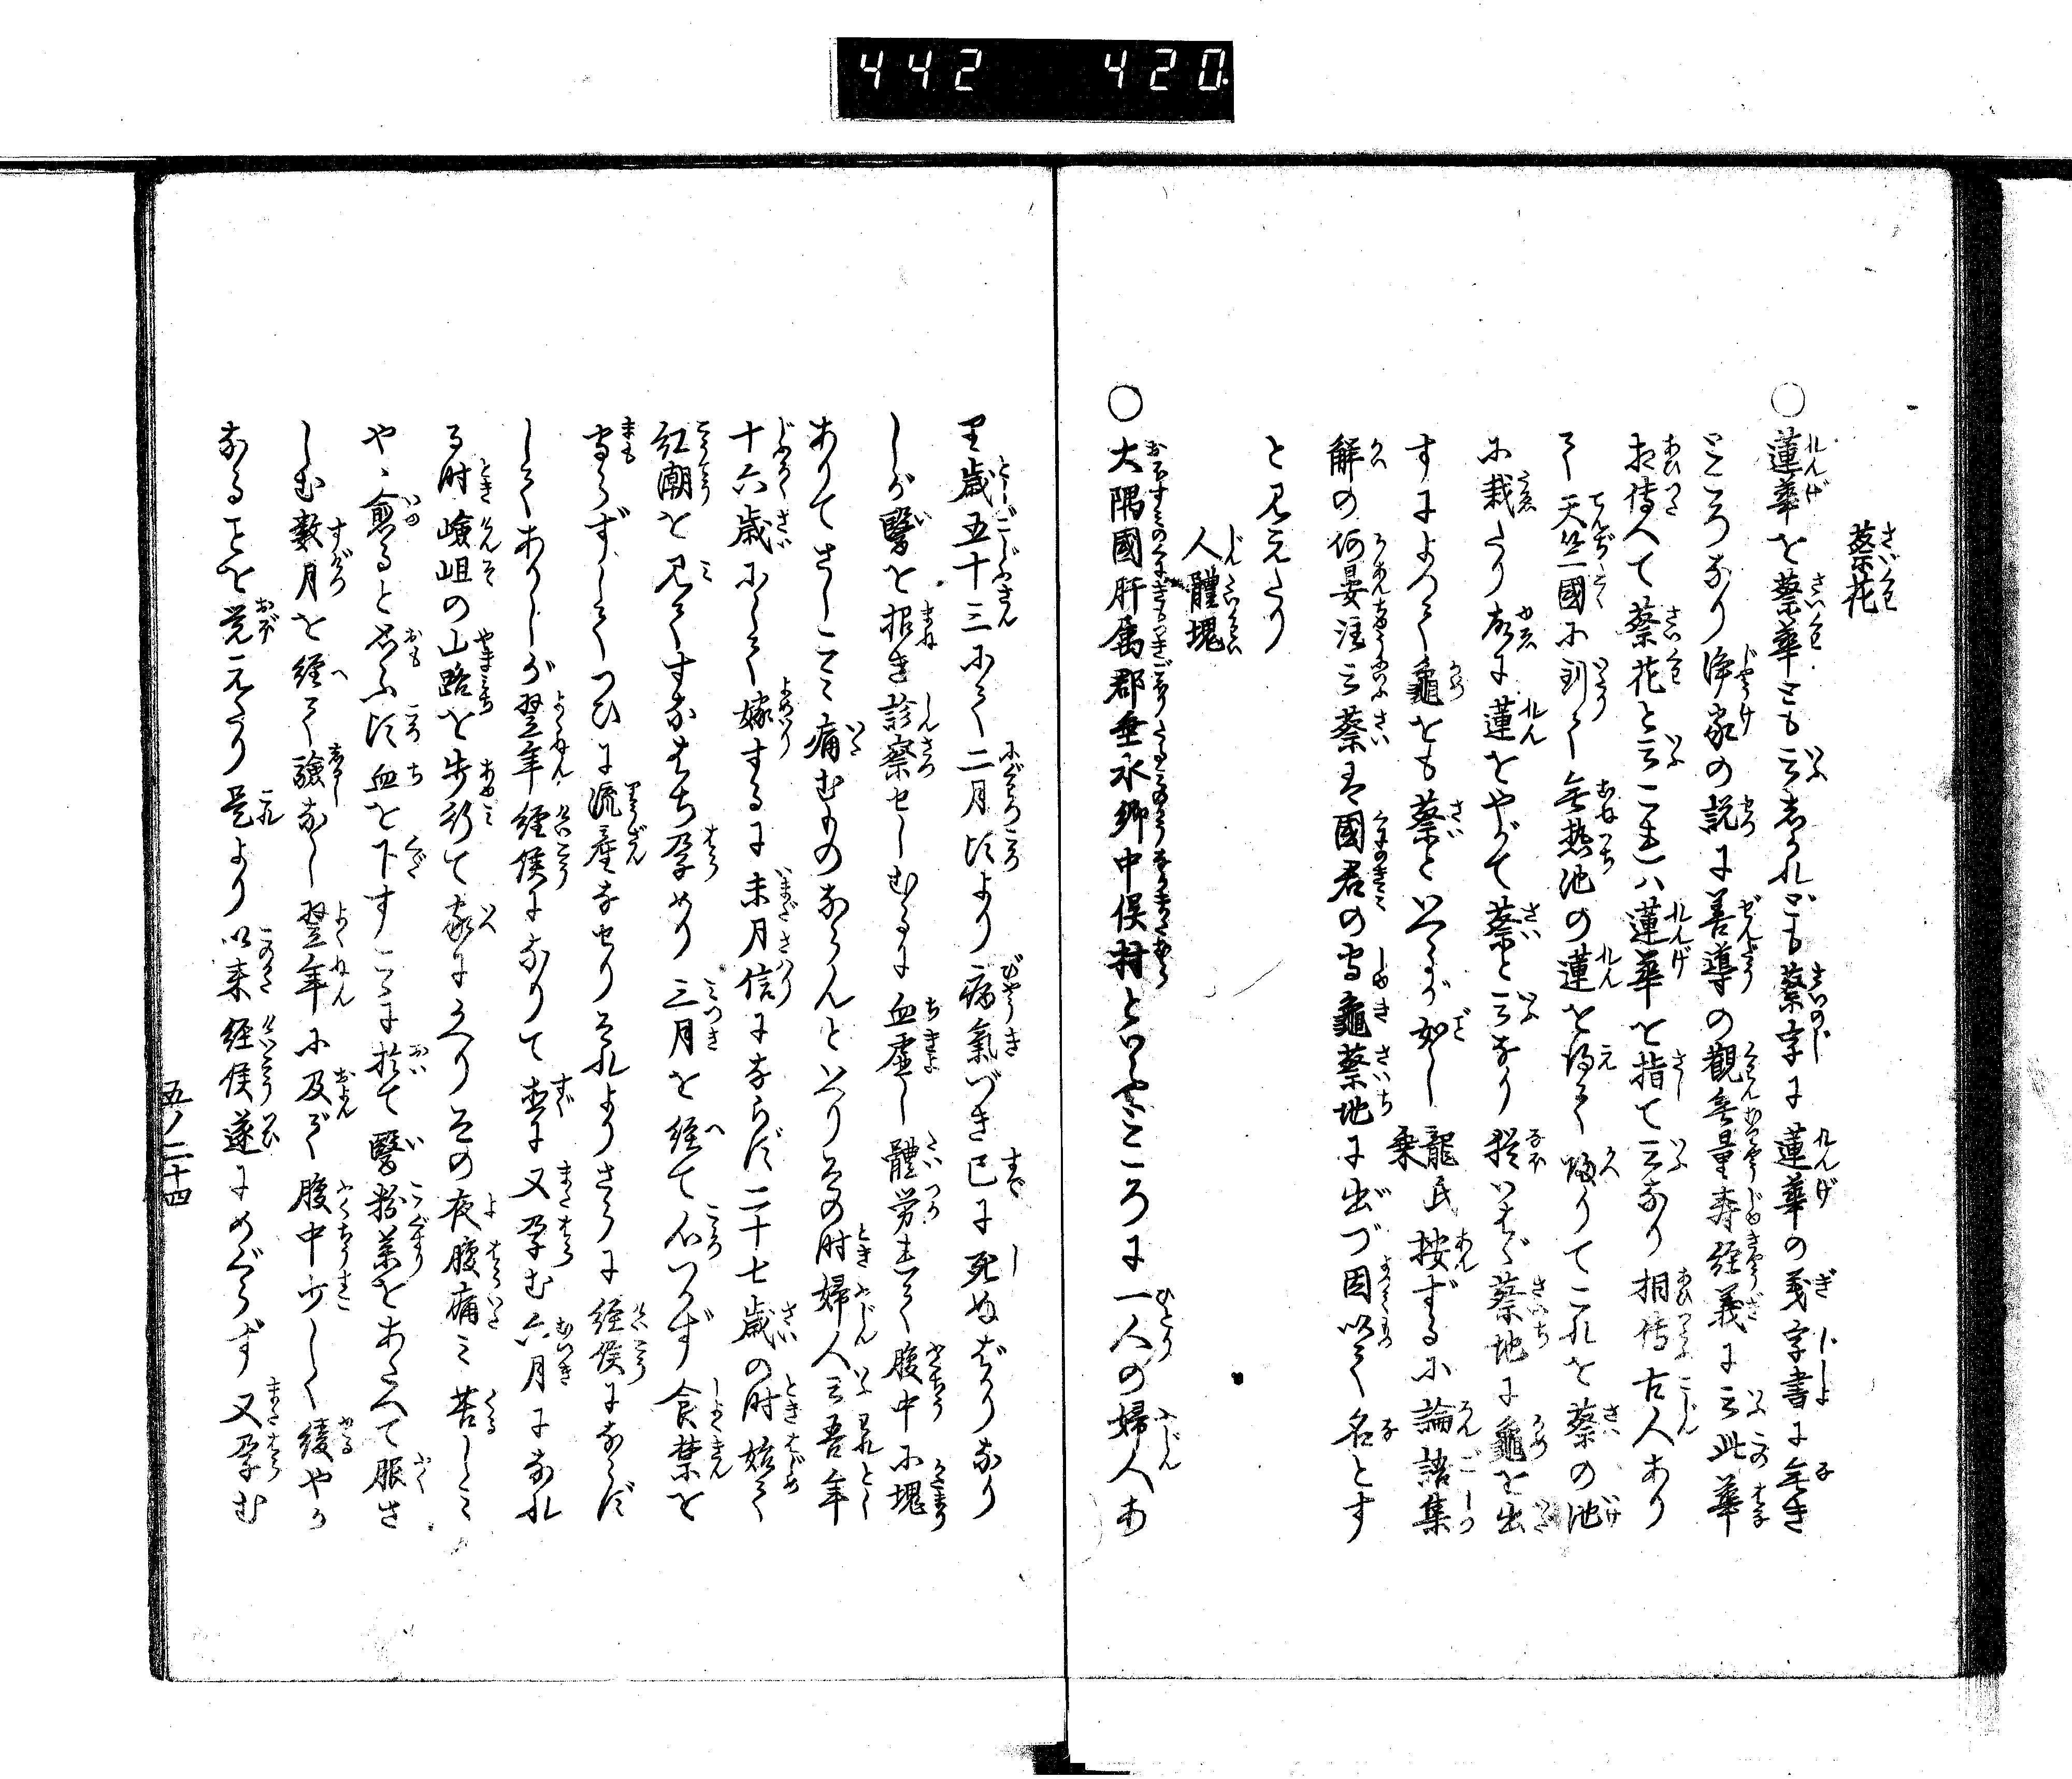 442 420
蔡花
○蓮華を蔡華とも云しかれども蔡字に蓮華の義字書に無き
ところなり浄家の説に善導の觀無量寿経義に云此華
相傳へて蔡花と云これハ蓮華を指て云なり相傳古人あり
て天竺國に到て無熱池の蓮を得て帰りてこれを蔡の池
に栽たり故に蓮をやがて蔡と云なり猶いはゞ蔡地に龜を出
すによつて龜をも蔡といふが如し 龍民按ずるに論語集
解の何晏注云蔡は國君の守龜蔡地に出づ因以て名とす
と見えたり
人體塊
○大隅國肝属郡垂水郷中俣村といふところに一人の婦人あ
り歳五十三にて二月頃より病氣づき已に死ぬばかりなり
しが醫を招き診察せしむるに血虚し體労れて腹中に塊
ありてさしこみ痛むものならんといへりその時婦人云吾年
十六歳にして嫁するに未月信にならず二十七歳の時始て
紅潮を見てすなはち孕めり三月を経て心つかず食禁を
守らずしてつひに流産なせりそれよりさらに経候にならず
してありしが翌年経候になりて直に又孕む六月になれ
る時嶮岨の山路を歩行て家にかへりその夜腹痛み苦しみ
やゝ愈ると思ふ頃血を下すこゝに於て醫粉薬をあたへて服さ
しむ數月を経て驗なし翌年に及て腹中少しく緩やか
なることを覚えたり是より以来経候遂にめぐらず又孕む
五ノ二十四